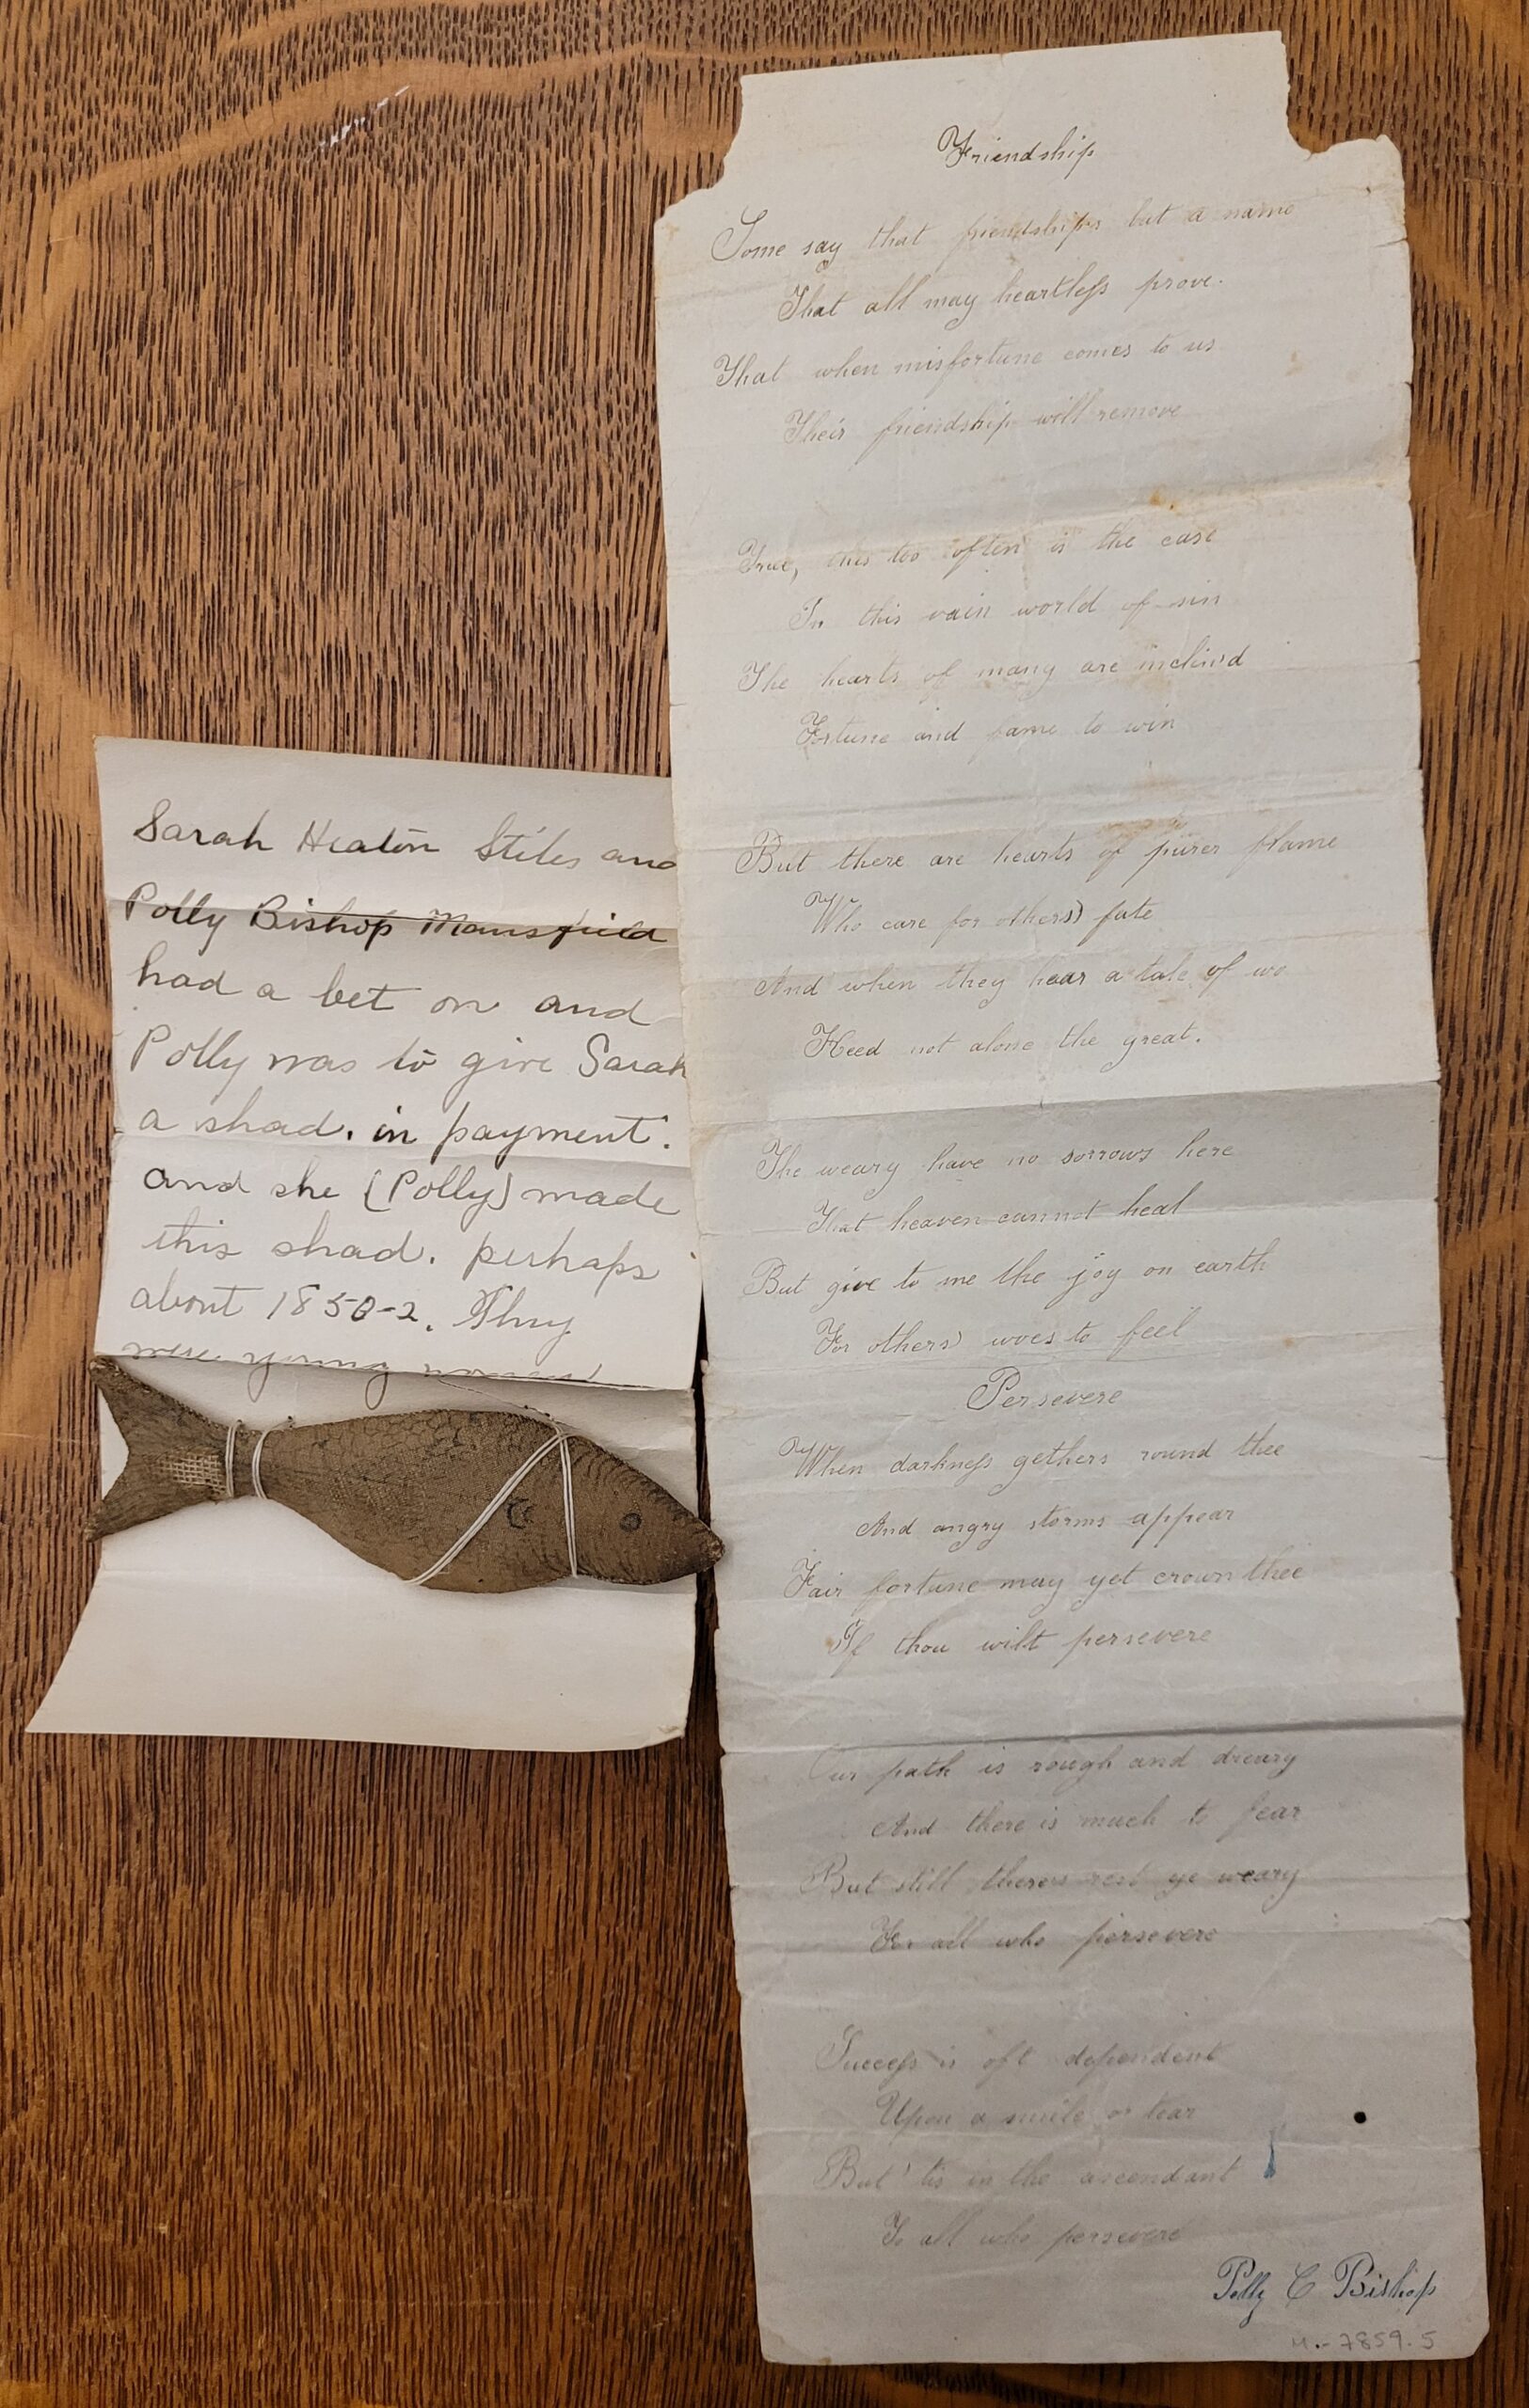 Sarah Heaton Stiles and
Polly Bishop Mansfield
had a bet on and
Polly was to give Sarah
a shad. in payment.
and she (Polly) made
this shad. perhaps
about 1850-2. They
were young women
Friendship
Some say that friendships but a name
That all may heartless prove.
That when misfortune comes to us
Their friendship will remove
True, this too often is the case
In this vain world of sin
The hearts of many are inclin'd
Fortune and fame to win
But there are hearts of purer flame
Who care for others' fate
And when they hear a tale of wo
Heed not alone the great.
The weary have no sorrows here
That heaven cannot heal
But give to me the joy on earth
For others' woes to feel
Persevere
When darkness gethers round thee
And angry storms appear
Fair fortune may yet crown thee
If thou wilt persevere
Our path is rough and dreary
And there is much to fear
But still there's rest ye weary
For all who persevere
Success is oft dependent
Upon a smile or tear
But 'tis in the ascendant
To all who persevere
Polly C Bishop
M.-7859.5